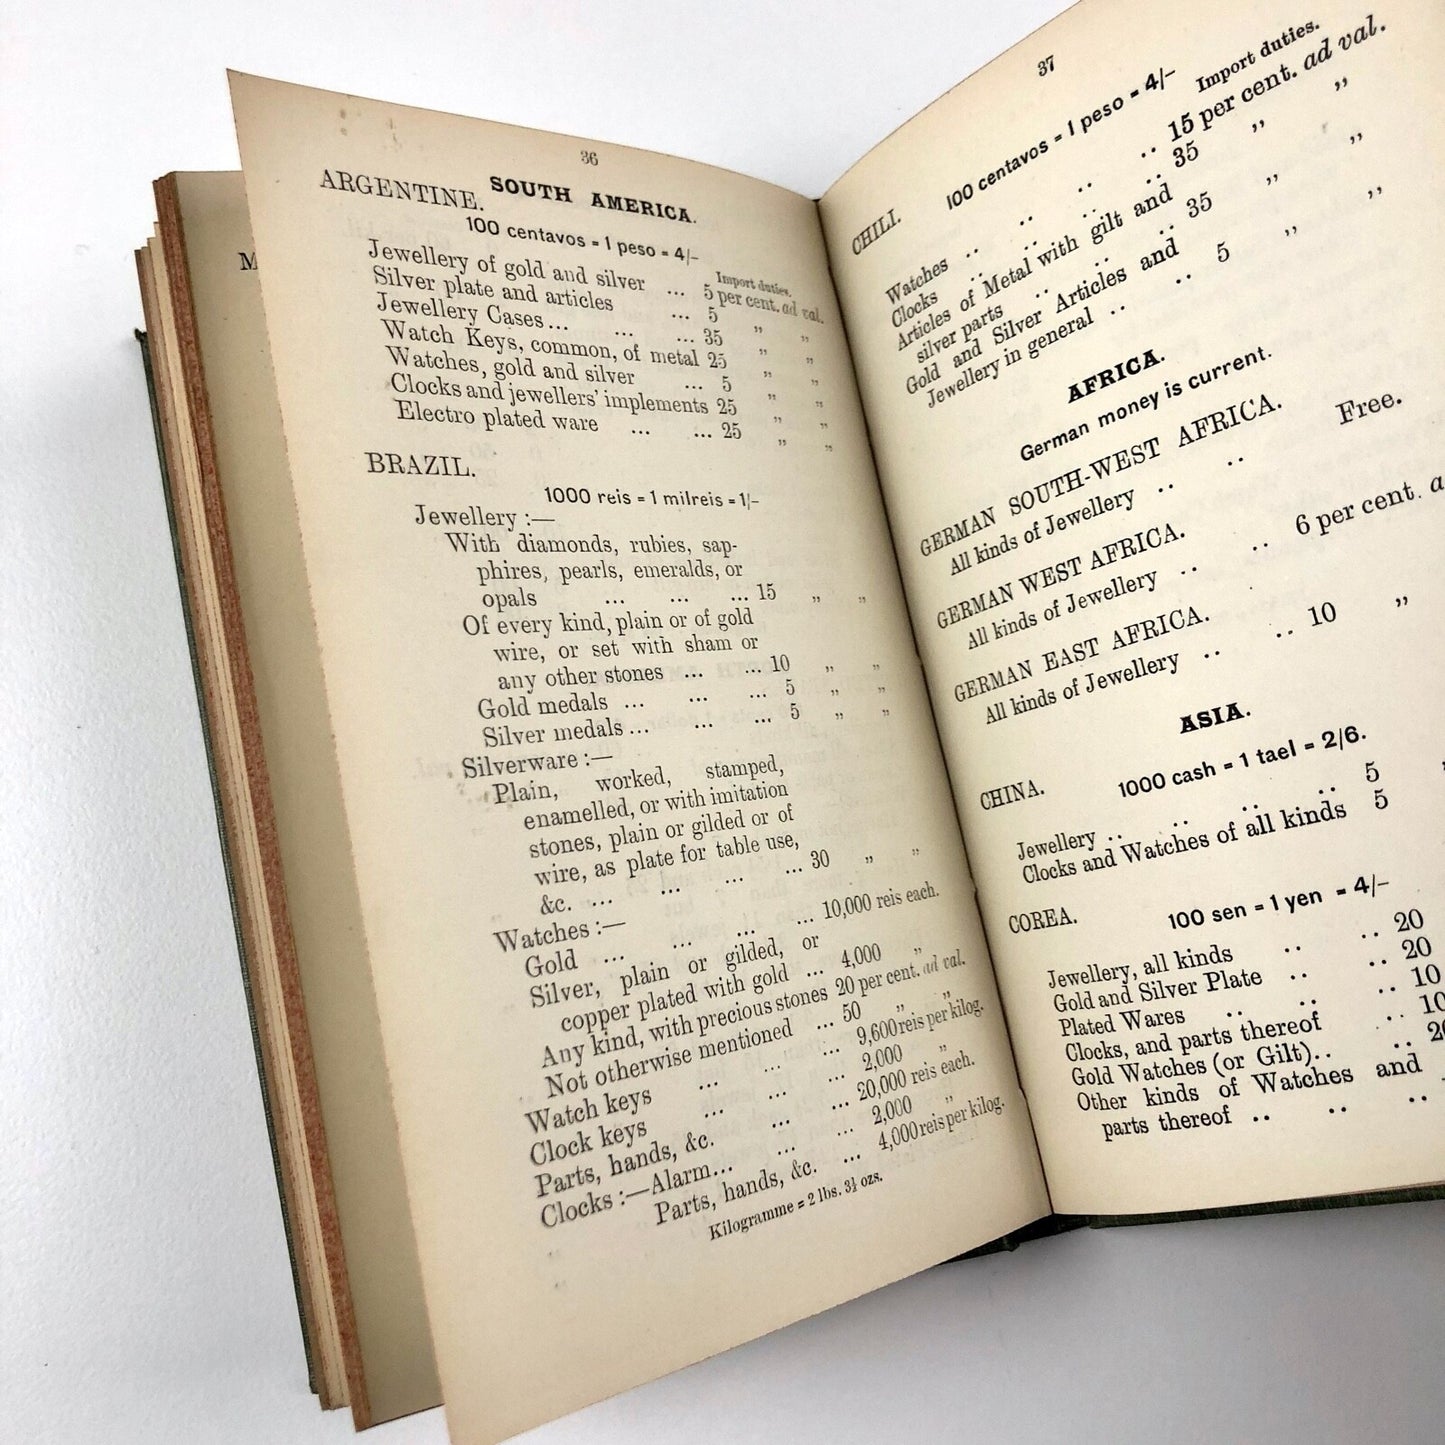 M
36
SOUTH AMERICA.
ARGENTINE.
100 centavos = 1 peso = 4/-
Import duties.
Jewellery of gold and silver ... 5 per cent. ad val.
Silver plate and articles ... 5 „ „
Jewellery Cases... ... ... 35 „ „
Watch Keys, common, of metal 25 „ „
Watches, gold and silver ... 5 „ „
Clocks and jewellers' implements 25 „ „
Electro plated ware ... ... 25 „ „
BRAZIL.
1000 reis = 1 milreis = 1/-
Jewellery :—
With diamonds, rubies, sap-
phires, pearls, emeralds, or
opals ... ... ... 15 „ „
Of every kind, plain or of gold
wire, or set with sham or
any other stones ... ... 10 „ „
Gold medals ... ... ... 5 „ „
Silver medals ... ... ... 5 „ „
Silverware :—
Plain, worked, stamped,
enamelled, or with imitation
stones, plain or gilded or of
wire, as plate for table use,
&c. ... ... ... ... 30 „ „
Watches :—
Gold ... ... ... ... 10,000 reis each.
Silver, plain or gilded, or
copper plated with gold ... 4,000 „
Any kind, with precious stones 20 per cent. ad val.
Not otherwise mentioned ... 50 „ „
Watch keys ... ... ... 9,600 reis per kilog.
Clock keys ... ... ... 2,000 „
Parts, hands, &c. ... ... 20,000 reis each.
Clocks :—Alarm... ... 2,000 „
Parts, hands, &c. ... 4,000 reis per kilog.
Kilogramme = 2 lbs. 3¼ ozs.
37
CHILI.
100 centavos = 1 peso = 4/-
Import duties.
Watches .. .. .. .. 15 per cent. ad val.
Clocks .. .. .. .. 35 „ „
Articles of Metal with gilt and
silver parts .. .. .. 35 „ „
Gold and Silver Articles and
Jewellery in general .. .. 5 „ „
AFRICA.
German money is current.
GERMAN SOUTH-WEST AFRICA.
All kinds of Jewellery .. .. Free.
GERMAN WEST AFRICA.
All kinds of Jewellery .. .. 6 per cent. a
GERMAN EAST AFRICA.
All kinds of Jewellery .. .. 10 „
ASIA.
CHINA.
1000 cash = 1 tael = 2/6.
Jewellery .. .. .. .. 5 „
Clocks and Watches of all kinds 5
COREA.
100 sen = 1 yen = 4/-
Jewellery, all kinds .. .. 20
Gold and Silver Plate .. .. 20
Plated Wares .. .. .. 10
Clocks, and parts thereof .. 10
Gold Watches (or Gilt).. .. 20
Other kinds of Watches and
parts thereof .. .. ..